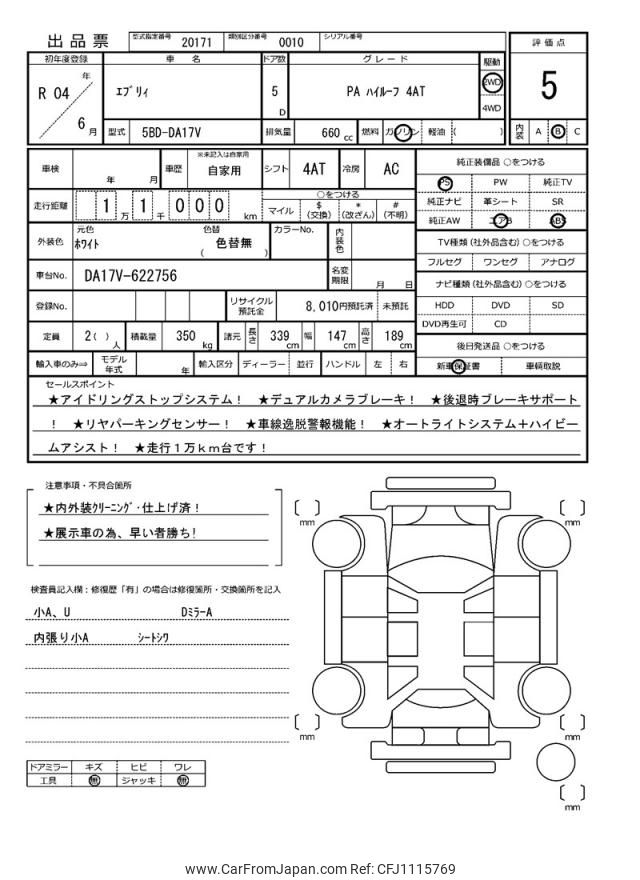 出品票
型式指定番号 20171 類別区分番号 0010 シリアル番号
評価点
5
内装 A B C
初年度登録 車名 ドア数 グレード 駆動
R 04 年 6 月
ｴﾌﾞﾘｨ 5 D PA ﾊｲﾙｰﾌ 4AT
2WD
4WD
型式 5BD-DA17V 排気量 660 cc 燃料 ガソリン 軽油 ( )
車検 年 月 車歴 ※未記入は自家用 自家用 シフト 4AT 冷房 AC
走行距離 1 万 1 千 0 0 0 km
○をつける
マイル $(交換) *(改ざん) #(不明)
外装色 元色 ﾎﾜｲﾄ 色替 ( 色替無 ) カラーNo. 内装色
車台No. DA17V-622756 名変期限 月 日
登録No. リサイクル預託金 8,010円預託済 未預託
定員 2( )人 積載量 350 kg 諸元 長さ 339 cm 幅 147 cm 高さ 189 cm
輸入車のみ⇒ モデル年式 年 輸入区分 ディーラー 並行 ハンドル 左 右
純正装備品 ○をつける
PS PW 純正TV
純正ナビ 革シート SR
純正AW エアB ABS
TV種類(社外品含む)○をつける
フルセグ ワンセグ アナログ
ナビ種類(社外品含む)○をつける
HDD DVD SD
DVD再生可 CD
後日発送品 ○をつける
新車保証書 車輌取説
セールスポイント
★アイドリングストップシステム！ ★デュアルカメラブレーキ！ ★後退時ブレーキサポート
！ ★リヤパーキングセンサー！ ★車線逸脱警報機能！ ★オートライトシステム＋ハイビー
ムアシスト！ ★走行１万ｋｍ台です！
注意事項・不具合箇所
★内外装ｸﾘｰﾆﾝｸﾞ･仕上げ済！
★展示車の為、早い者勝ち！
検査員記入欄：修復歴「有」の場合は修復箇所・交換箇所を記入
小A、U DﾐﾗｰA
内張り小A ｼｰﾄｼﾜ
ドアミラー キズ ヒビ ワレ
工具 無 ジャッキ 無
mm mm
mm mm
mm
www.CarFromJapan.com Ref: CFJ1115769